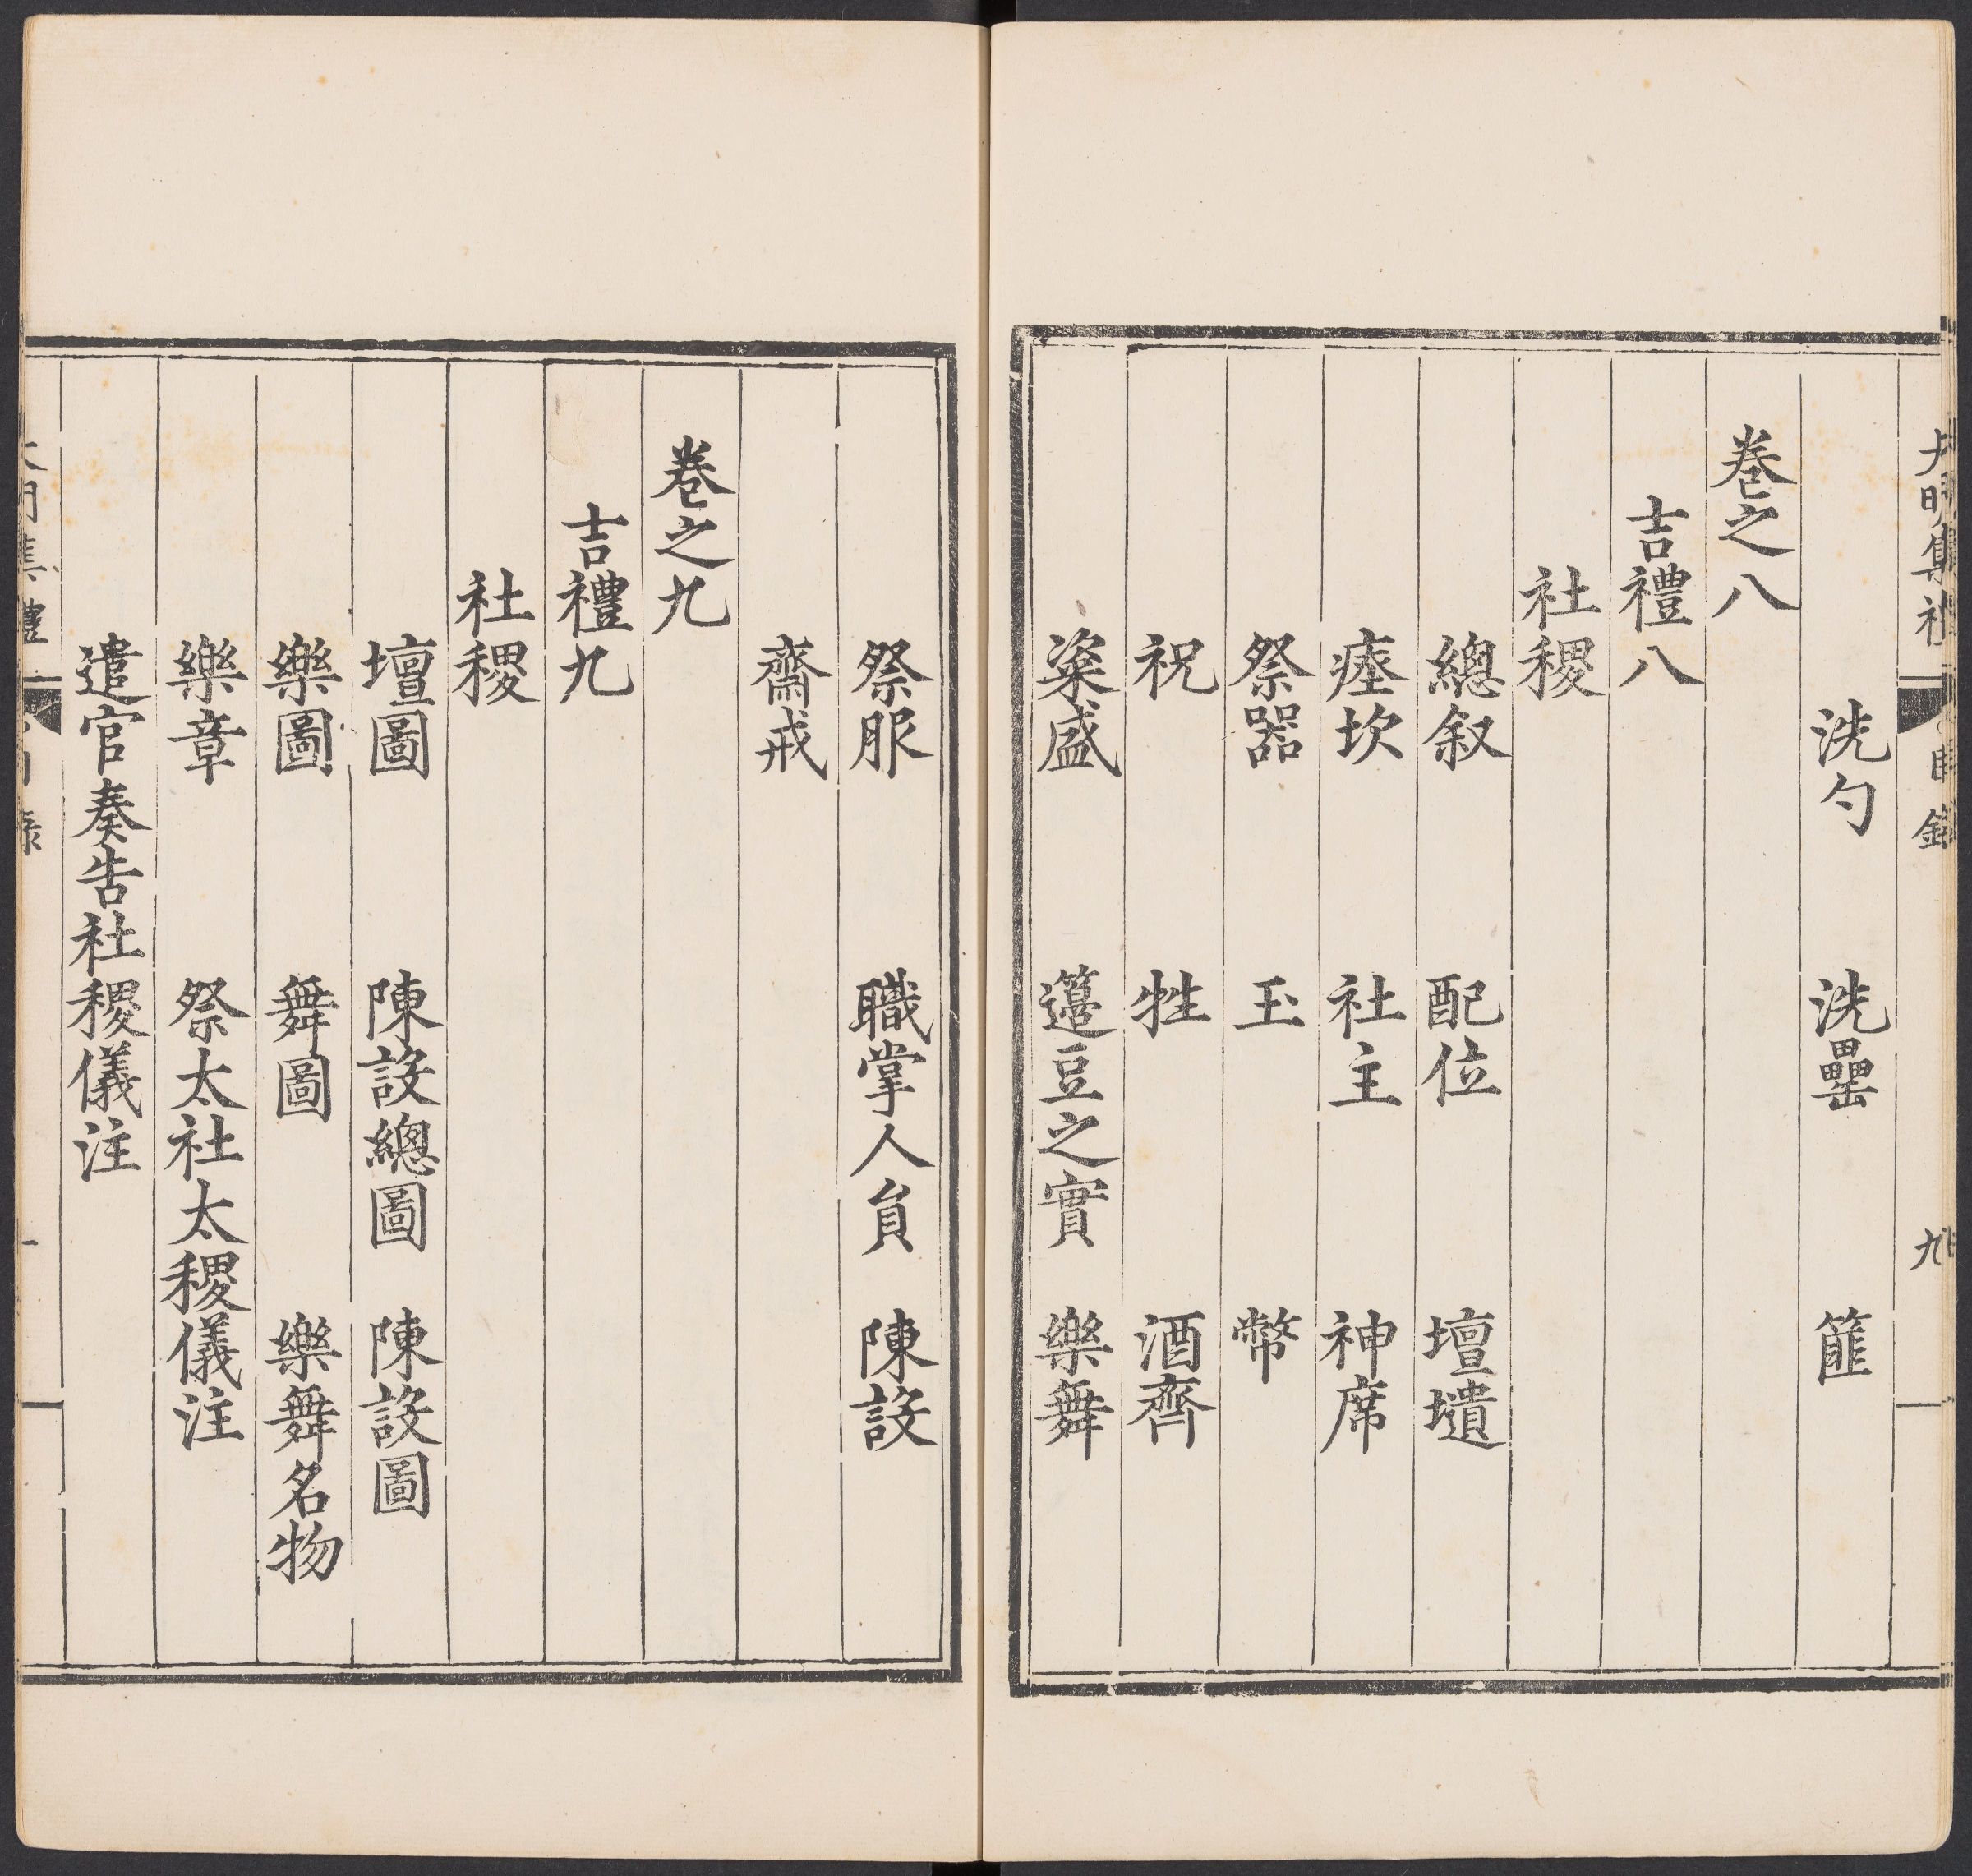 大明集禮 目錄 九
洗勺 洗罍 篚
卷之八
吉禮八
社稷
總叙 配位 壇壝
瘞坎 社主 神席
祭器 玉 幣
祝 牲 酒齊
粢盛 籩豆之實 樂舞
祭服 職掌人員 陳設
齋戒
卷之九
吉禮九
社稷
壇圖 陳設總圖 陳設圖
樂圖 舞圖 樂舞名物
樂章 祭太社太稷儀注
遣官奏告社稷儀注
大明集禮 目錄